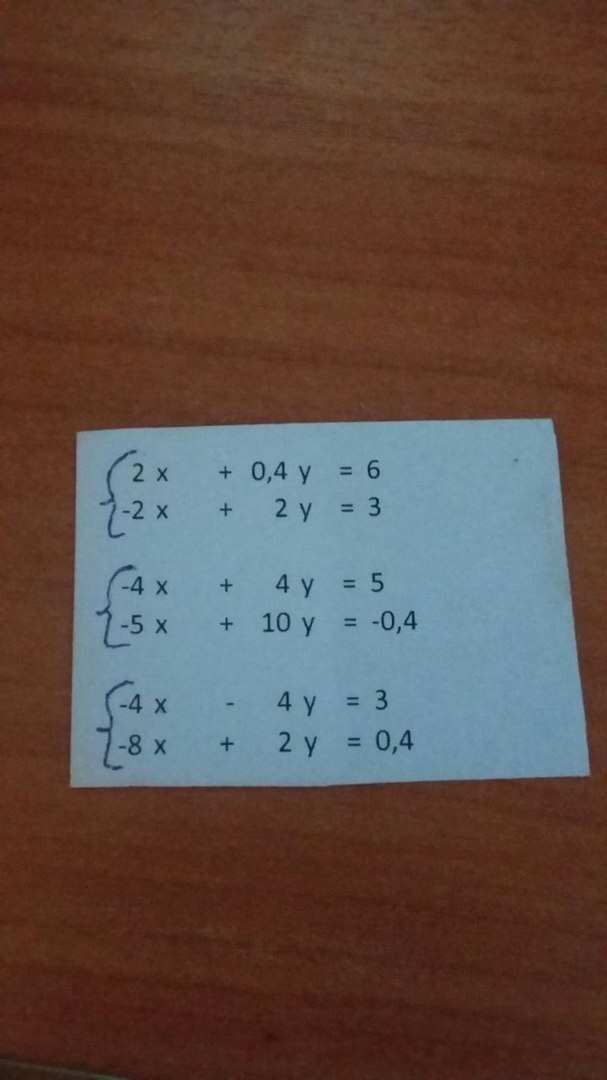 2 x + 0,4 y = 6
-2 x + 2 y = 3
-4 x + 4 y = 5
-5 x + 10 y = -0,4
-4 x - 4 y = 3
-8 x + 2 y = 0,4